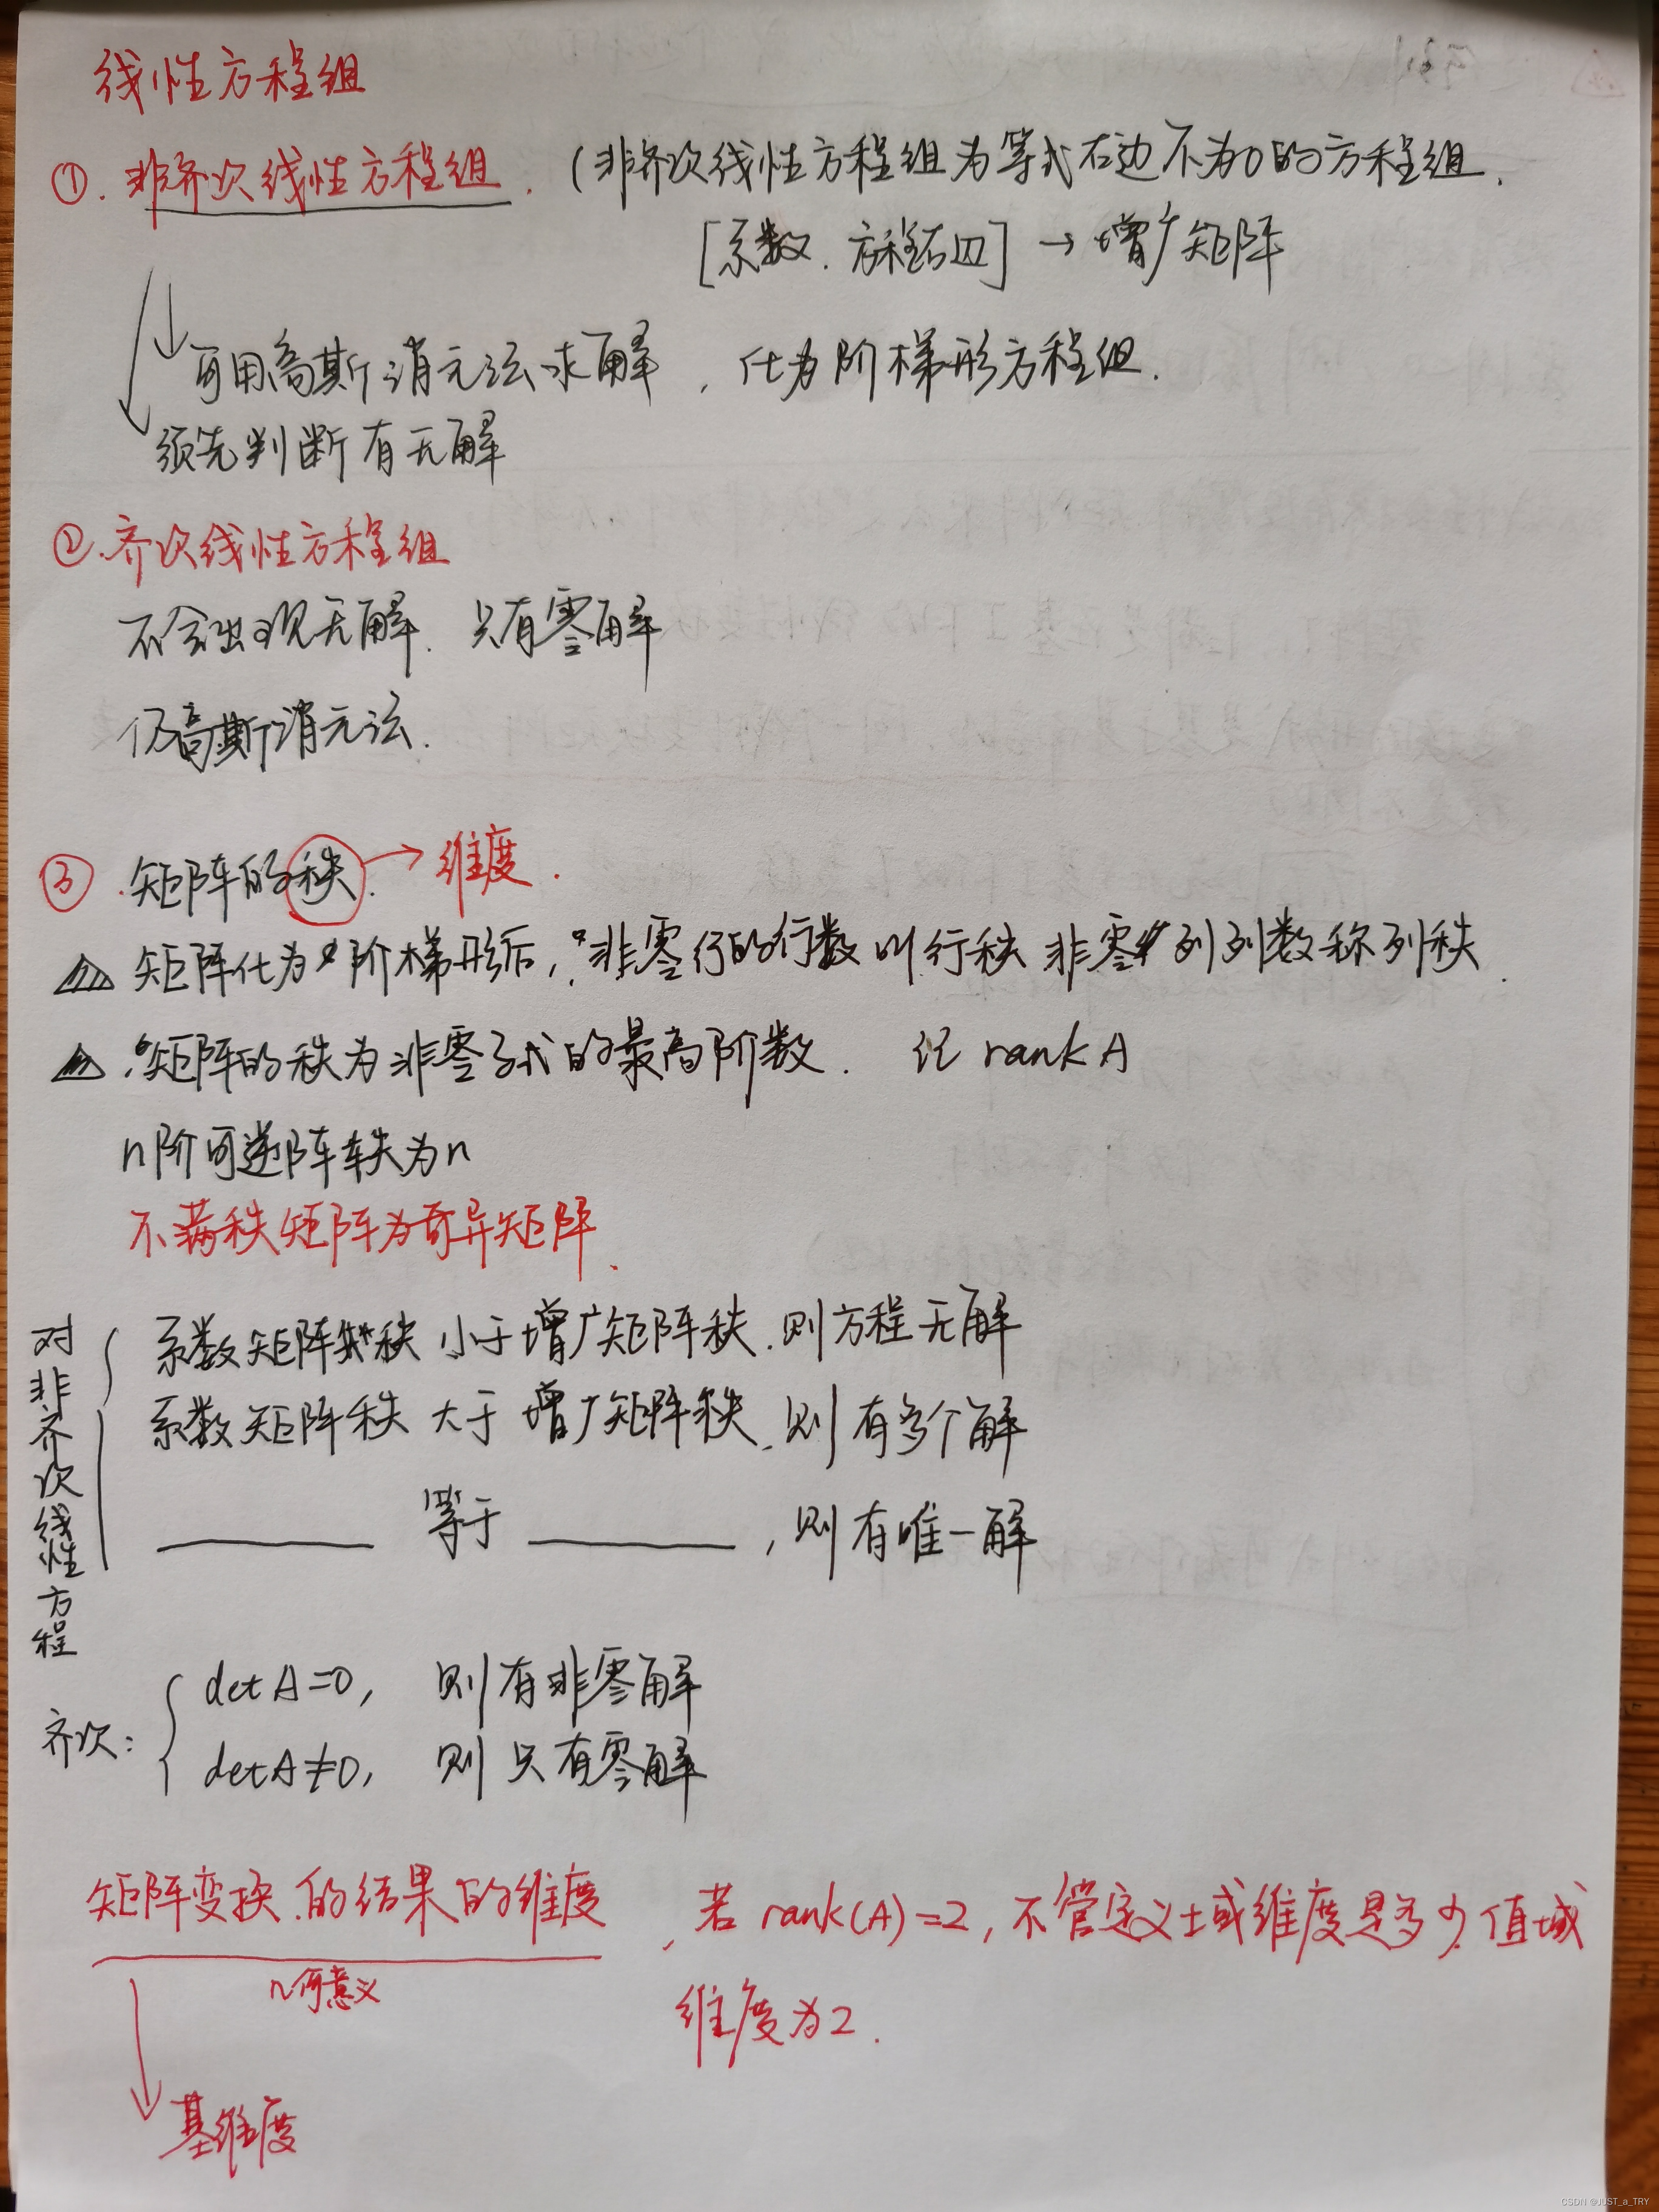 线性方程组
①. 非齐次线性方程组. (非齐次线性方程组为等式右边不为0的方程组.
[系数. 方程右边] → 增广矩阵
可用高斯消元法求解, 化为阶梯形方程组.
须先判断有无解
②.齐次线性方程组
不会出现无解. 只有零解
仍高斯消元法.
③.矩阵的秩. → 维度.
矩阵化为阶梯形后, "非零行的行数叫行秩 非零列列数称列秩.
矩阵的秩为非零子式的最高阶数. 记 rank A
n阶可逆阵秩为n
不满秩矩阵为奇异矩阵.
对非齐次线性方程
系数矩阵秩 小于增广矩阵秩.则方程无解
系数矩阵秩 大于 增广矩阵秩.则有多个解
等于 , 则有唯一解
齐次:
detA=0, 则有非零解
detA≠0, 则只有零解
矩阵变换.的结果的维度, 若 rank(A)=2, 不管定义域维度是多少, 值域
几何意义
维度为2.
基维度
CSDN @JUST_a_TRY